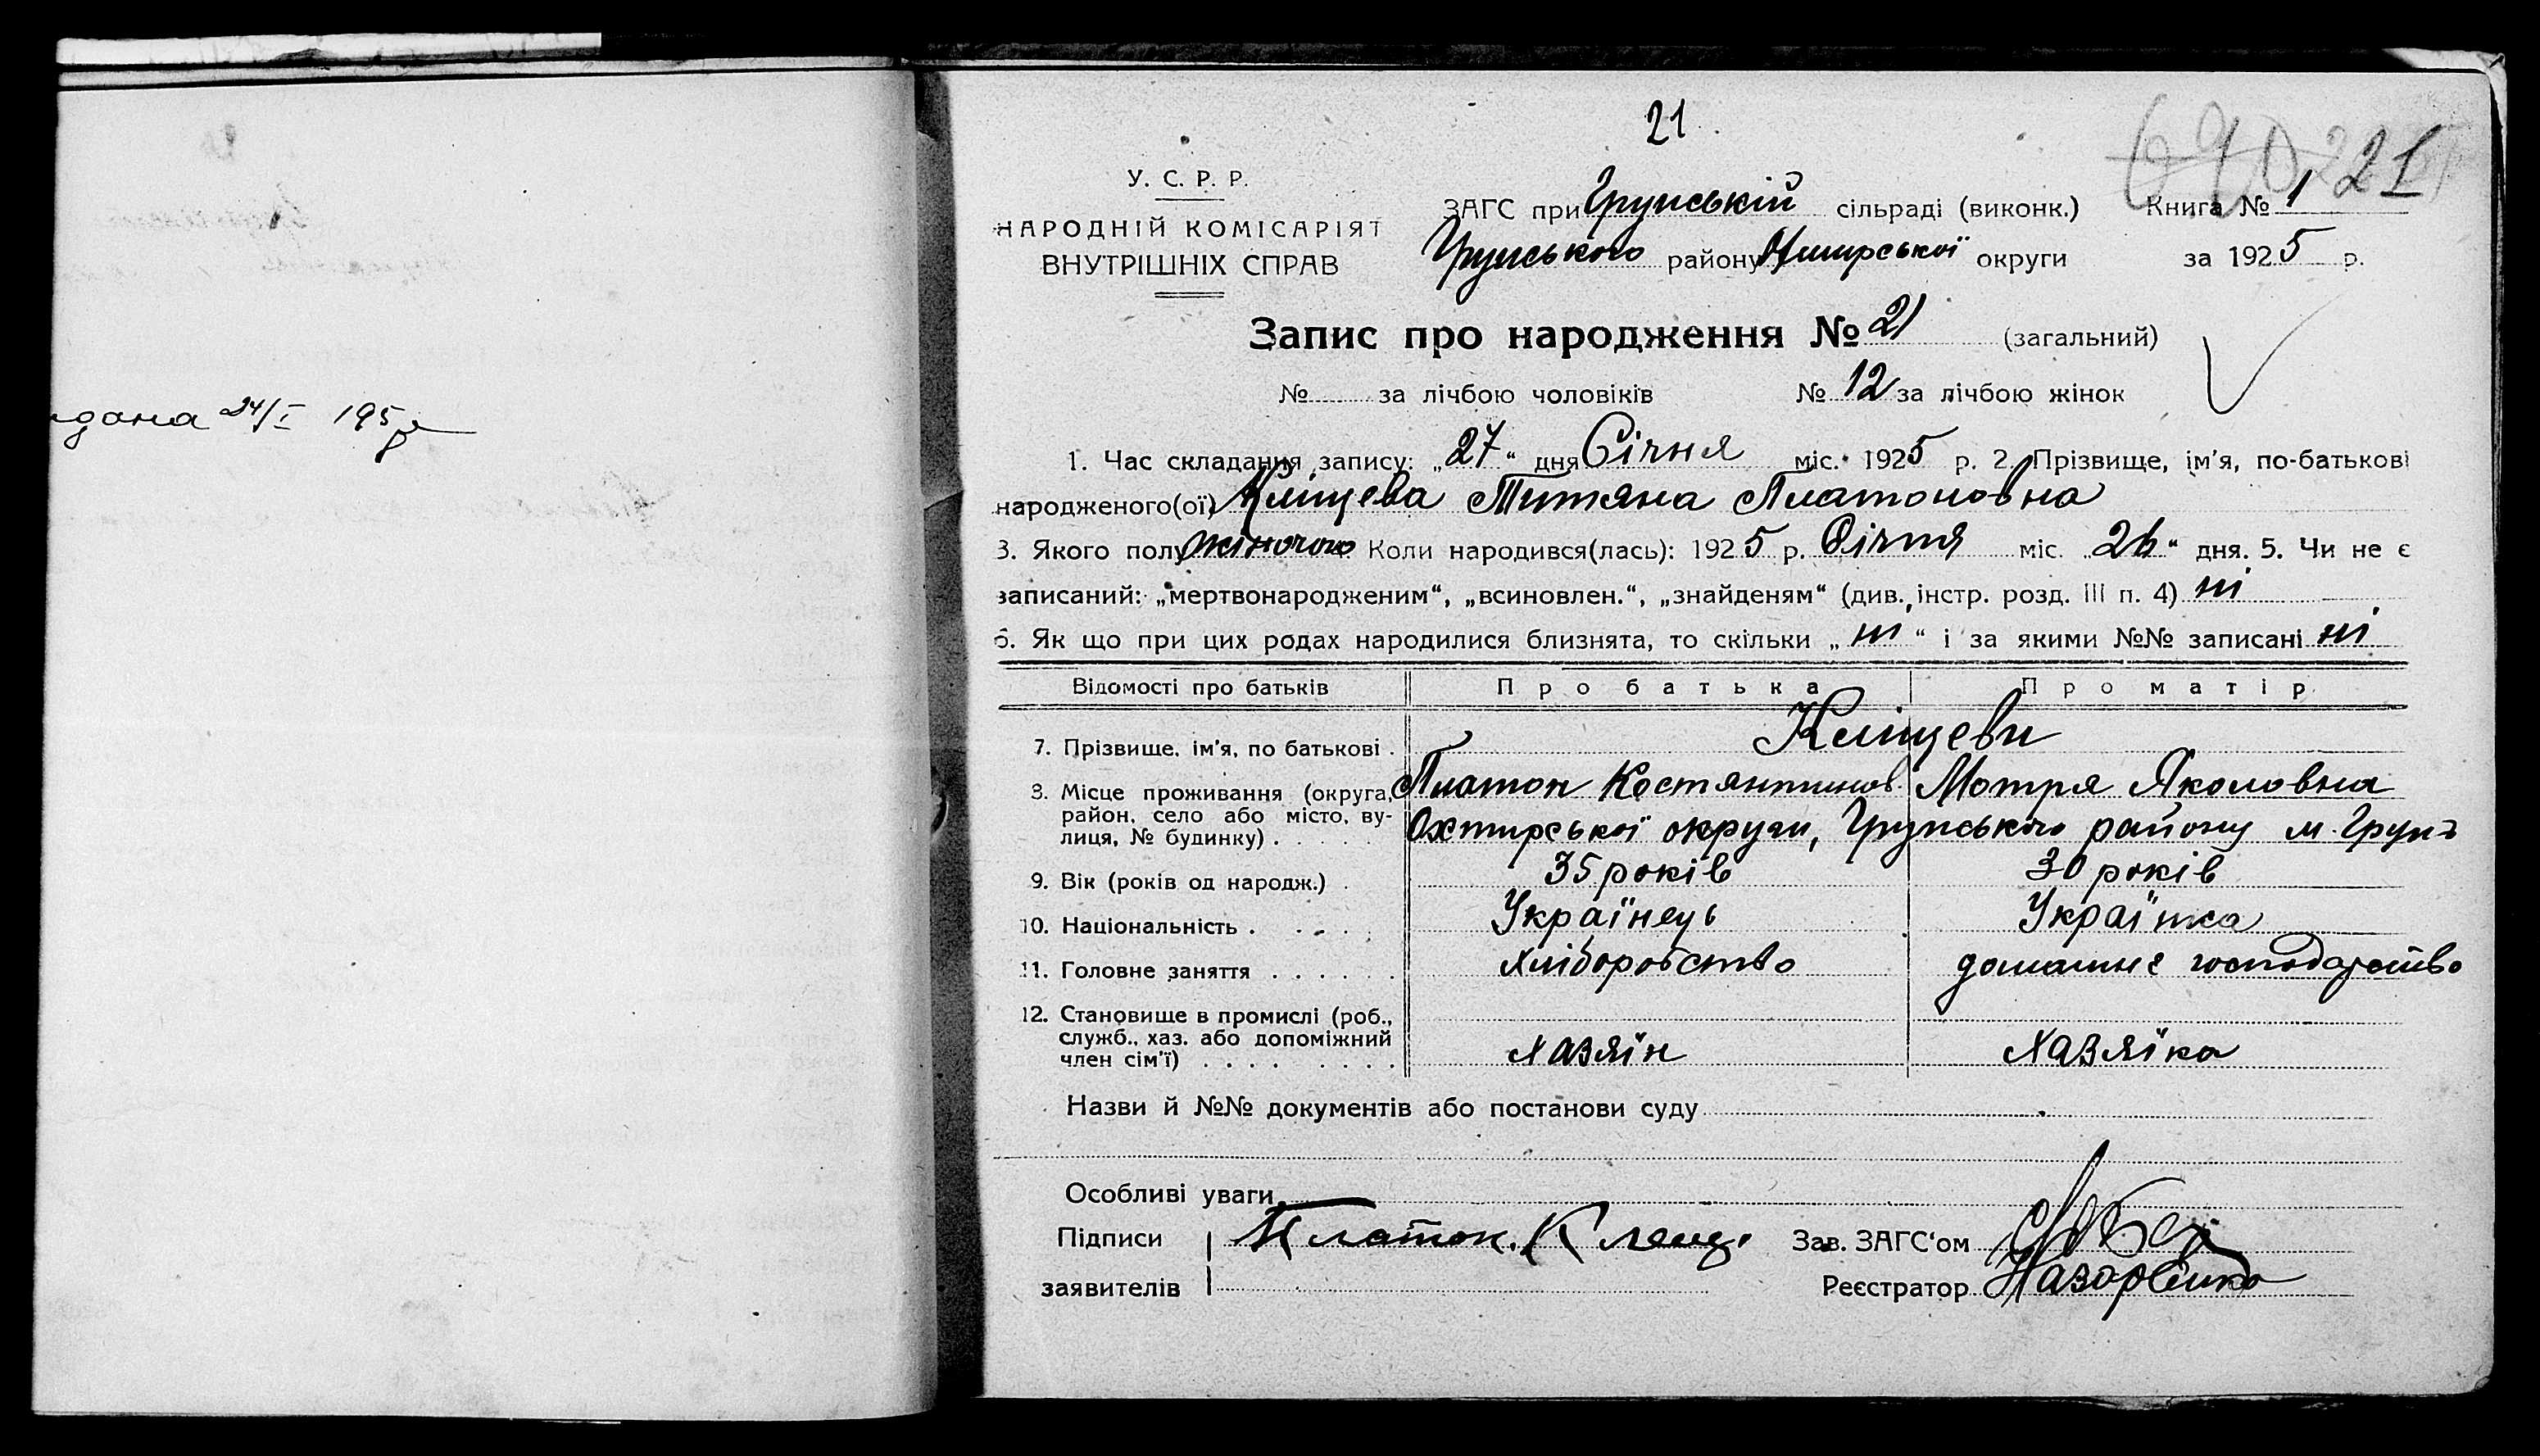 21
21
У. С. Р. Р.
НАРОДНІЙ КОМІСАРІЯТ
ВНУТРІШНІХ СПРАВ
ЗАГС при Грунській сільраді (виконк.) Книга № 1
Грунського району Охтирської округи за 1925 р.
Запис про народження № 21 (загальний)
№ за лічбою чоловіків № 12 за лічбою жінок
24/I 195
1. Час складання запису: „27“ дня Січня міс. 1925 р. 2. Прізвище, ім'я, по-батькові
народженого(ої) Кліщева Титяна Платоновна
3. Якого полу жіночого Коли народився(лась): 1925 р. Січня міс. „26“ дня. 5. Чи не є
записаний: „мертвонародженим“, „всиновлен.“, „знайденям“ (див. інстр. розд. III п. 4) ні
6. Як що при цих родах народилися близнята, то скільки „ні“ і за якими №№ записані ні
Відомості про батьків Про батька Про матір
7. Прізвище, ім'я, по батькові . Кліщеви
Платон Костянтинов. Мотря Яколовна
8. Місце проживання (округа, район, село або місто, ву-лиця, № будинку) . . . . . Охтирської округи, Грунського району м. Грунь
9. Вік (років од народж.) . 35 років 30 років
10. Національність . . . . . Українець Українка
11. Головне заняття . . . . . . хліборобство домашнє господарство
12. Становище в промислі (роб., служб., хаз. або допоміжний член сім'ї) . . . . . . . . хазяїн хазяїка
Назви й №№ документів або постанови суду
Особливі уваги
Підписи Платон. Клещ. Зав. ЗАГС'ом
заявителів Реєстратор Назаренко